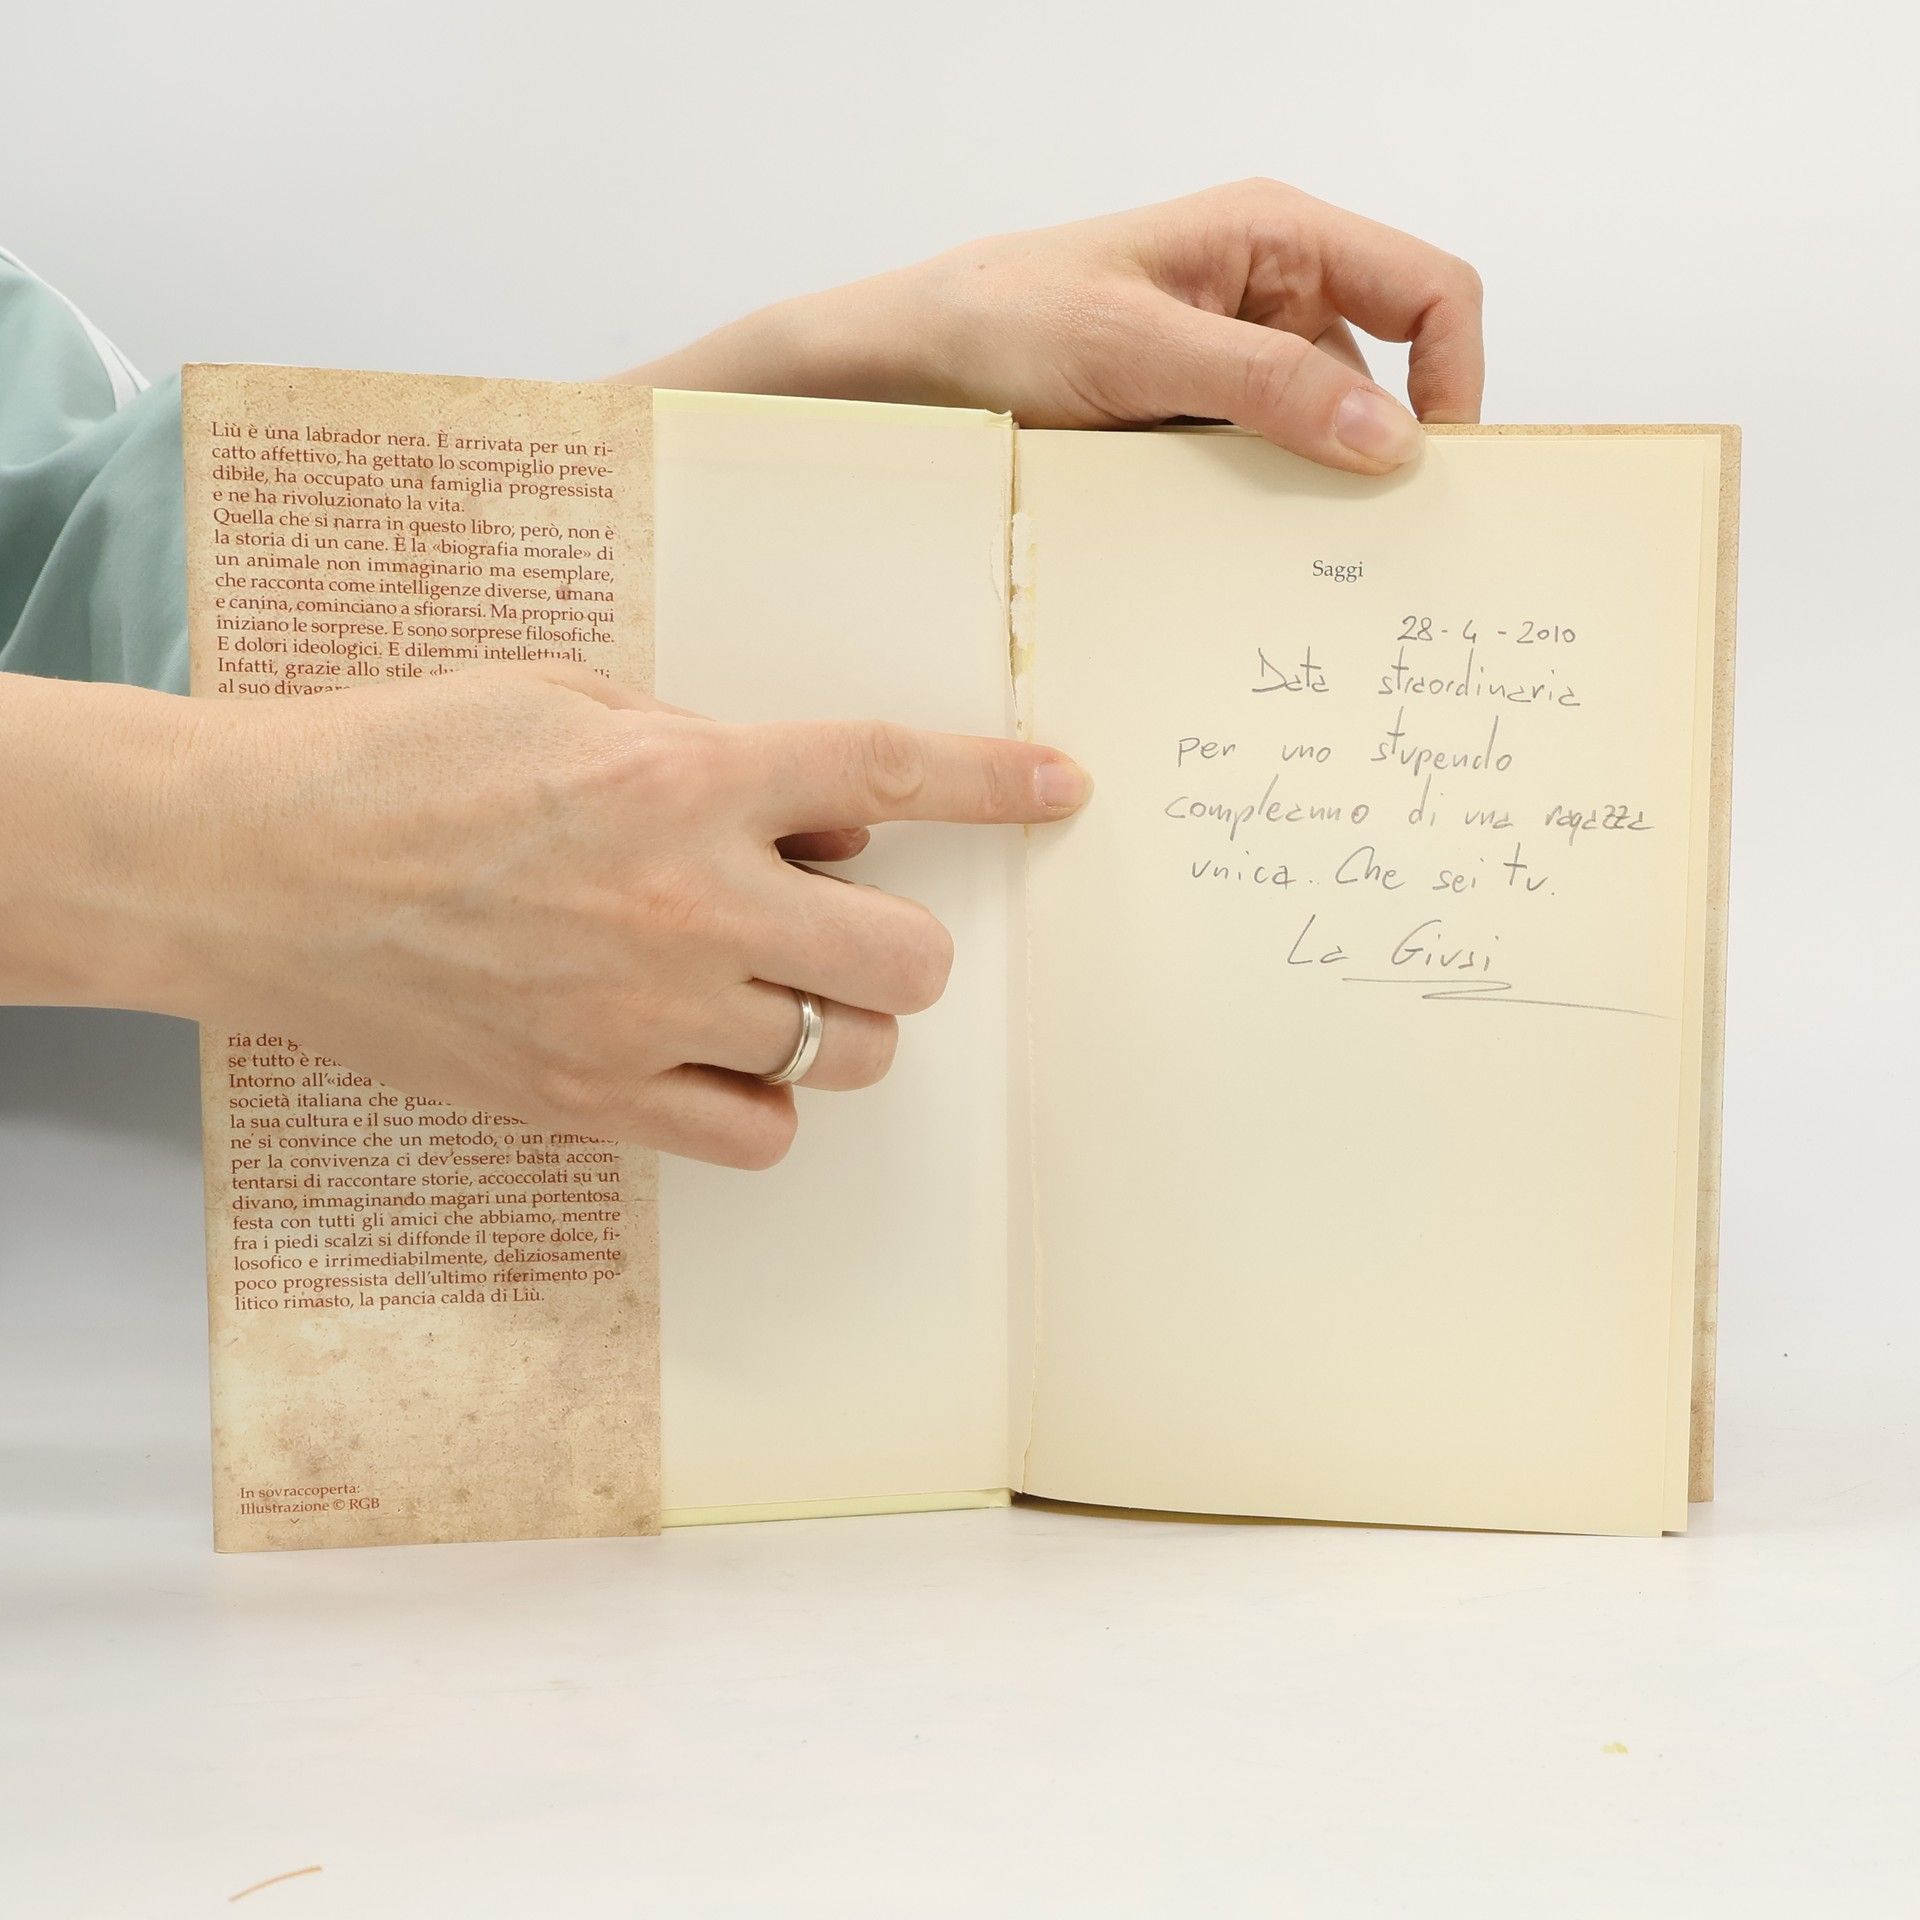 Liù è una labrador nera. È arrivata per un ri-
catto affettivo, ha gettato lo scompiglio preve-
dibile, ha occupato una famiglia progressista
e ne ha rivoluzionato la vita.
Quella che si narra in questo libro, però, non è
la storia di un cane. È la «biografia morale» di
un animale non immaginario ma esemplare,
che racconta come intelligenze diverse, umana
e canina, cominciano a sfiorarsi. Ma proprio qui
iniziano le sorprese. E sono sorprese filosofiche.
E dolori ideologici. E dilemmi intellettuali.
Infatti, grazie allo stile
al suo
ria dei
se tutto è
Intorno all'«idea
società italiana che
la sua cultura e il suo modo
ne si convince che un metodo, o un rimedio,
per la convivenza ci dev'essere: basta accon-
tentarsi di raccontare storie, accoccolati su un
divano, immaginando magari una portentosa
festa con tutti gli amici che abbiamo, mentre
fra i piedi scalzi si diffonde il tepore dolce, fi-
losofico e irrimediabilmente, deliziosamente
poco progressista dell'ultimo riferimento po-
litico rimasto, la pancia calda di Liù.
In sovraccoperta:
Illustrazione © RGB
Saggi
28-4-2010
Data straordinaria
per uno stupendo
compleanno di una ragazza
unica.. Che sei tu.
La Giusi